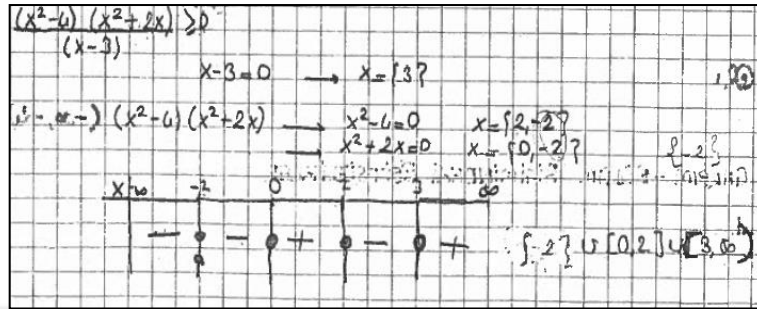 (x²-4) (x²+2x) ≥0
(x-3)
x-3=0 → x={3}
(x²-4)(x²+2x) → x²-4=0 x={2,-2}
→ x²+2x=0 x={0,-2}
{-2}
x -∞ -2 0 2 3 ∞
- - + - + {-2} ∪ [0,2] ∪ [3,∞)